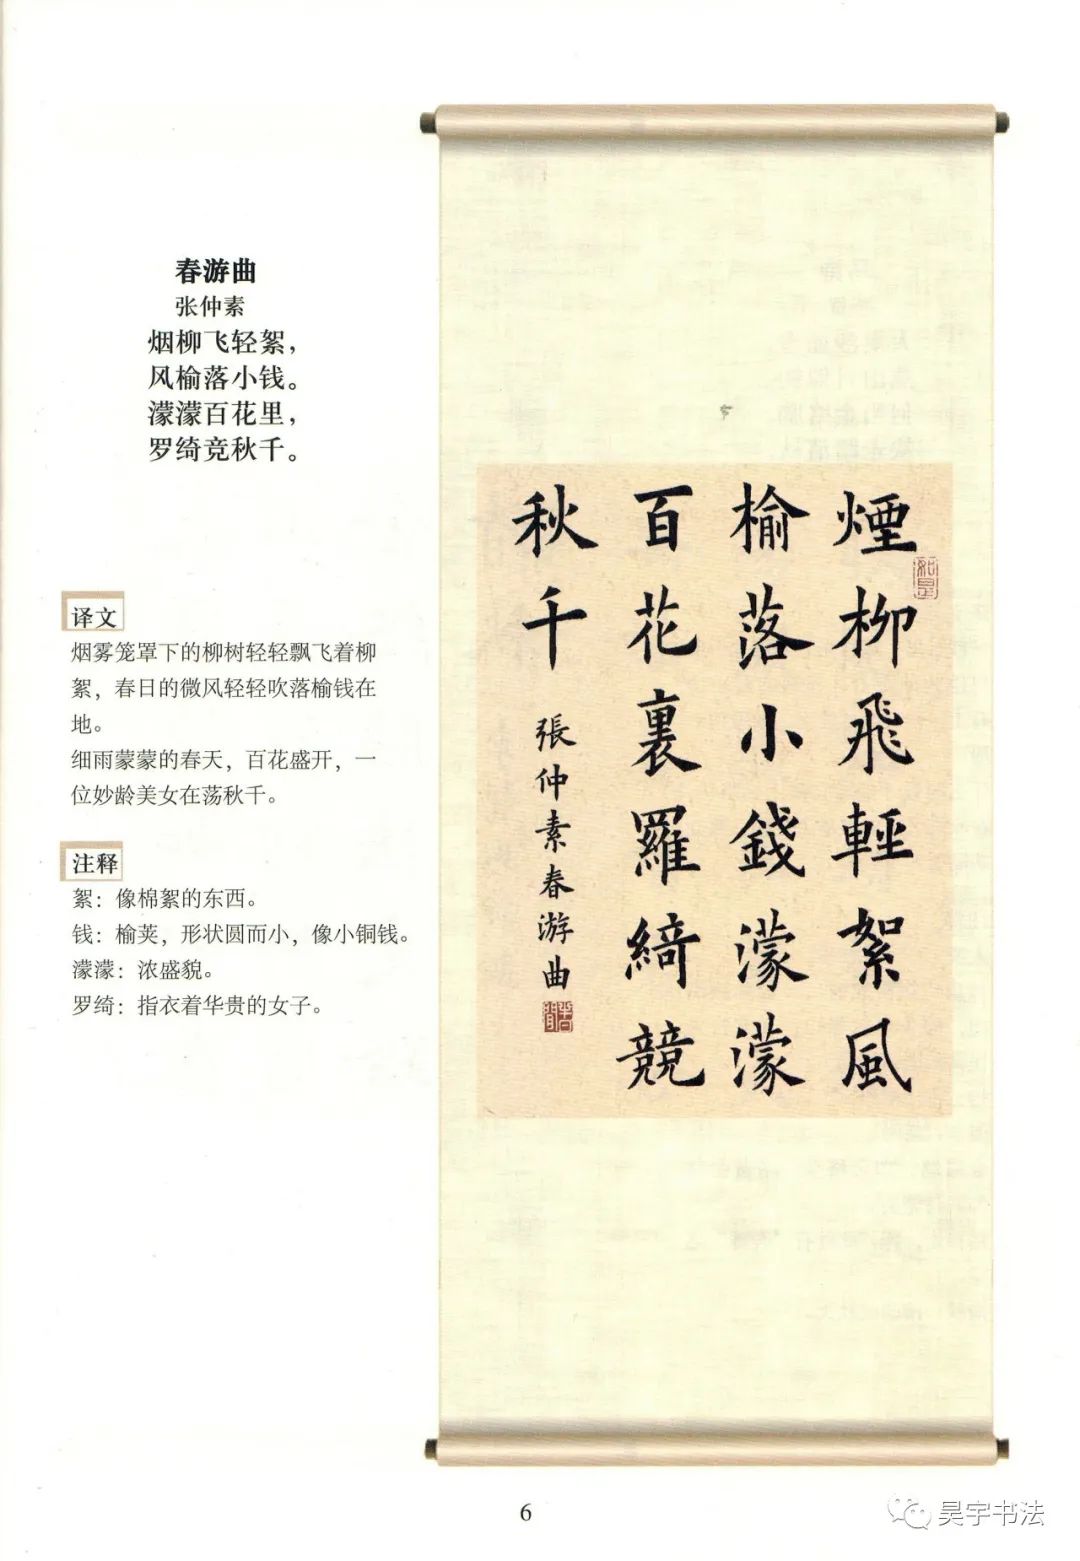 春游曲
张仲素
烟柳飞轻絮，
风榆落小钱。
濛濛百花里，
罗绮竞秋千。
译文
烟雾笼罩下的柳树轻轻飘飞着柳
絮，春日的微风轻轻吹落榆钱在
地。
细雨蒙蒙的春天，百花盛开，一
位妙龄美女在荡秋千。
注释
絮：像棉絮的东西。
钱：榆荚，形状圆而小，像小铜钱。
濛濛：浓盛貌。
罗绮：指衣着华贵的女子。
煙柳飛輕絮風
榆落小錢濛濛
百花裏羅綺競
秋千
張仲素春游曲
如是
6
昊宇书法